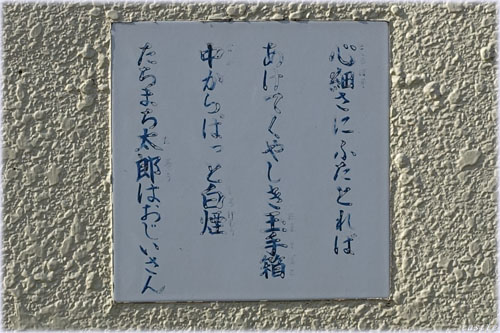 心細さにふたとれば
あけてくやしき玉手箱
中からぱっと白煙
たちまち太郎はおじいさん